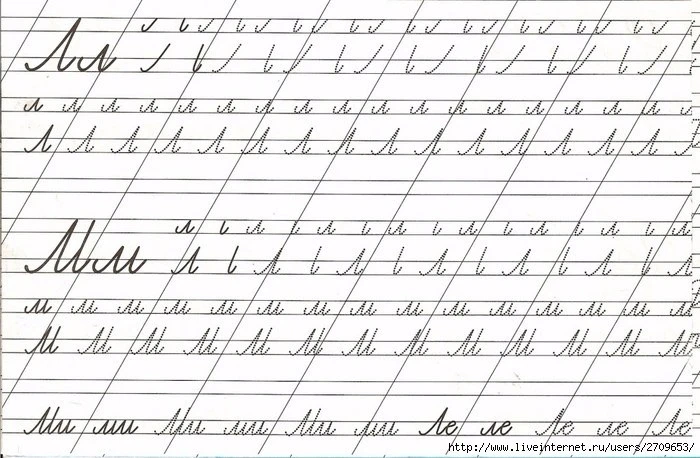 Лл
л л л л л л л л л л л л л л л л л
Л Л Л Л Л Л Л Л Л Л Л Л Л Л Л
Мм
м м м м м м м м м м м м м м м
М М М М М М М М М М М М М
Ми ми Ми ми Ми ми Ле ле Ле ле Ле
http://www.liveinternet.ru/users/2709653/